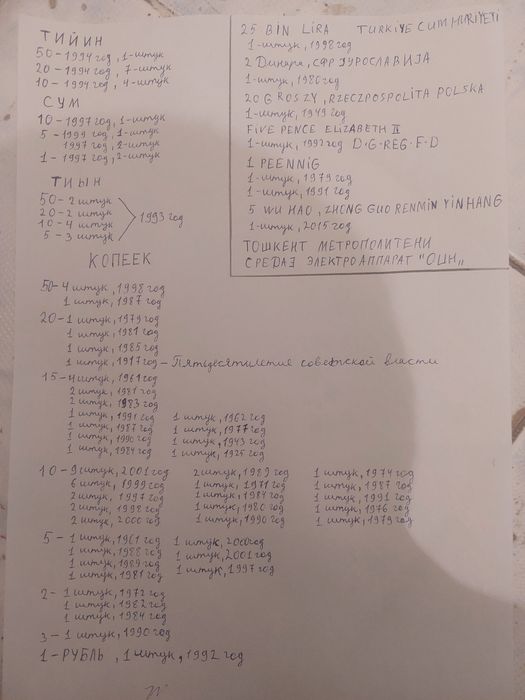 ТИЙИН
50-1994 год, 1-штук
20-1994 год, 7-штук
10-1994 год, 4-штук
СУМ
10-1997 год, 1-штук
5-1999 год, 1-штук
1997 год, 2-штук
1-1997 год, 2-штук
ТИЫН
50-2 штук
20-2 штук
10-4 штук
5-3 штук
1993 год
25 BIN LiRA TURKiYE CUMHURiYETi
1-штук, 1998 год
2 Динара, СФР ЈУГОСЛАВИЈА
1-штук, 1980 год
20 GROSZY, RZECZPOSPOLITA POLSKA
1-штук, 1949 год
FiVE PENCE ELiZABETH II
1-штук, 1992 год D·G·REG·F·D
1 PEENNiG
1-штук, 1979 год
1-штук, 1991 год
5 WU HAO, ZHONG GUO RENMIN YiNHANG
1-штук, 2015 год
ТОШКЕНТ МЕТРОПОЛИТЕНИ
СРЕДАЗ ЭЛЕКТРОАППАРАТ "ОЦН"
КОПЕЕК
50-4 штук, 1998 год
1 штук, 1987 год
20-1 штук, 1979 год
1 штук, 1981 год
1 штук, 1985 год
1 штук, 1917 год - Пятьдесятилетия советской власти
15-4 штук, 1961 год
2 штук, 1981 год
2 штук, 1983 год
1 штук, 1991 год
1 штук, 1987 год
1 штук, 1990 год
1 штук, 1984 год
1 штук, 1962 год
1 штук, 1977 год
1 штук, 1943 год
1 штук, 1925 год
10-9 штук, 2001 год
6 штук, 1999 год
2 штук, 1997 год
2 штук, 1998 год
2 штук, 2000 год
2 штук, 1989 год
1 штук, 1971 год
1 штук, 1984 год
1 штук, 1980 год
1 штук, 1990 год
1 штук, 1974 год
1 штук, 1987 год
1 штук, 1991 год
1 штук, 1976 год
1 штук, 1979 год
5-1 штук, 1961 год
1 штук, 1988 год
1 штук, 1989 год
1 штук, 1981 год
1 штук, 2000 год
1 штук, 2001 год
1 штук, 1997 год
2-1 штук, 1972 год
1 штук, 1982 год
1 штук, 1984 год
3-1 штук, 1990 год
1-РУБЛЬ, 1 штук, 1992 год